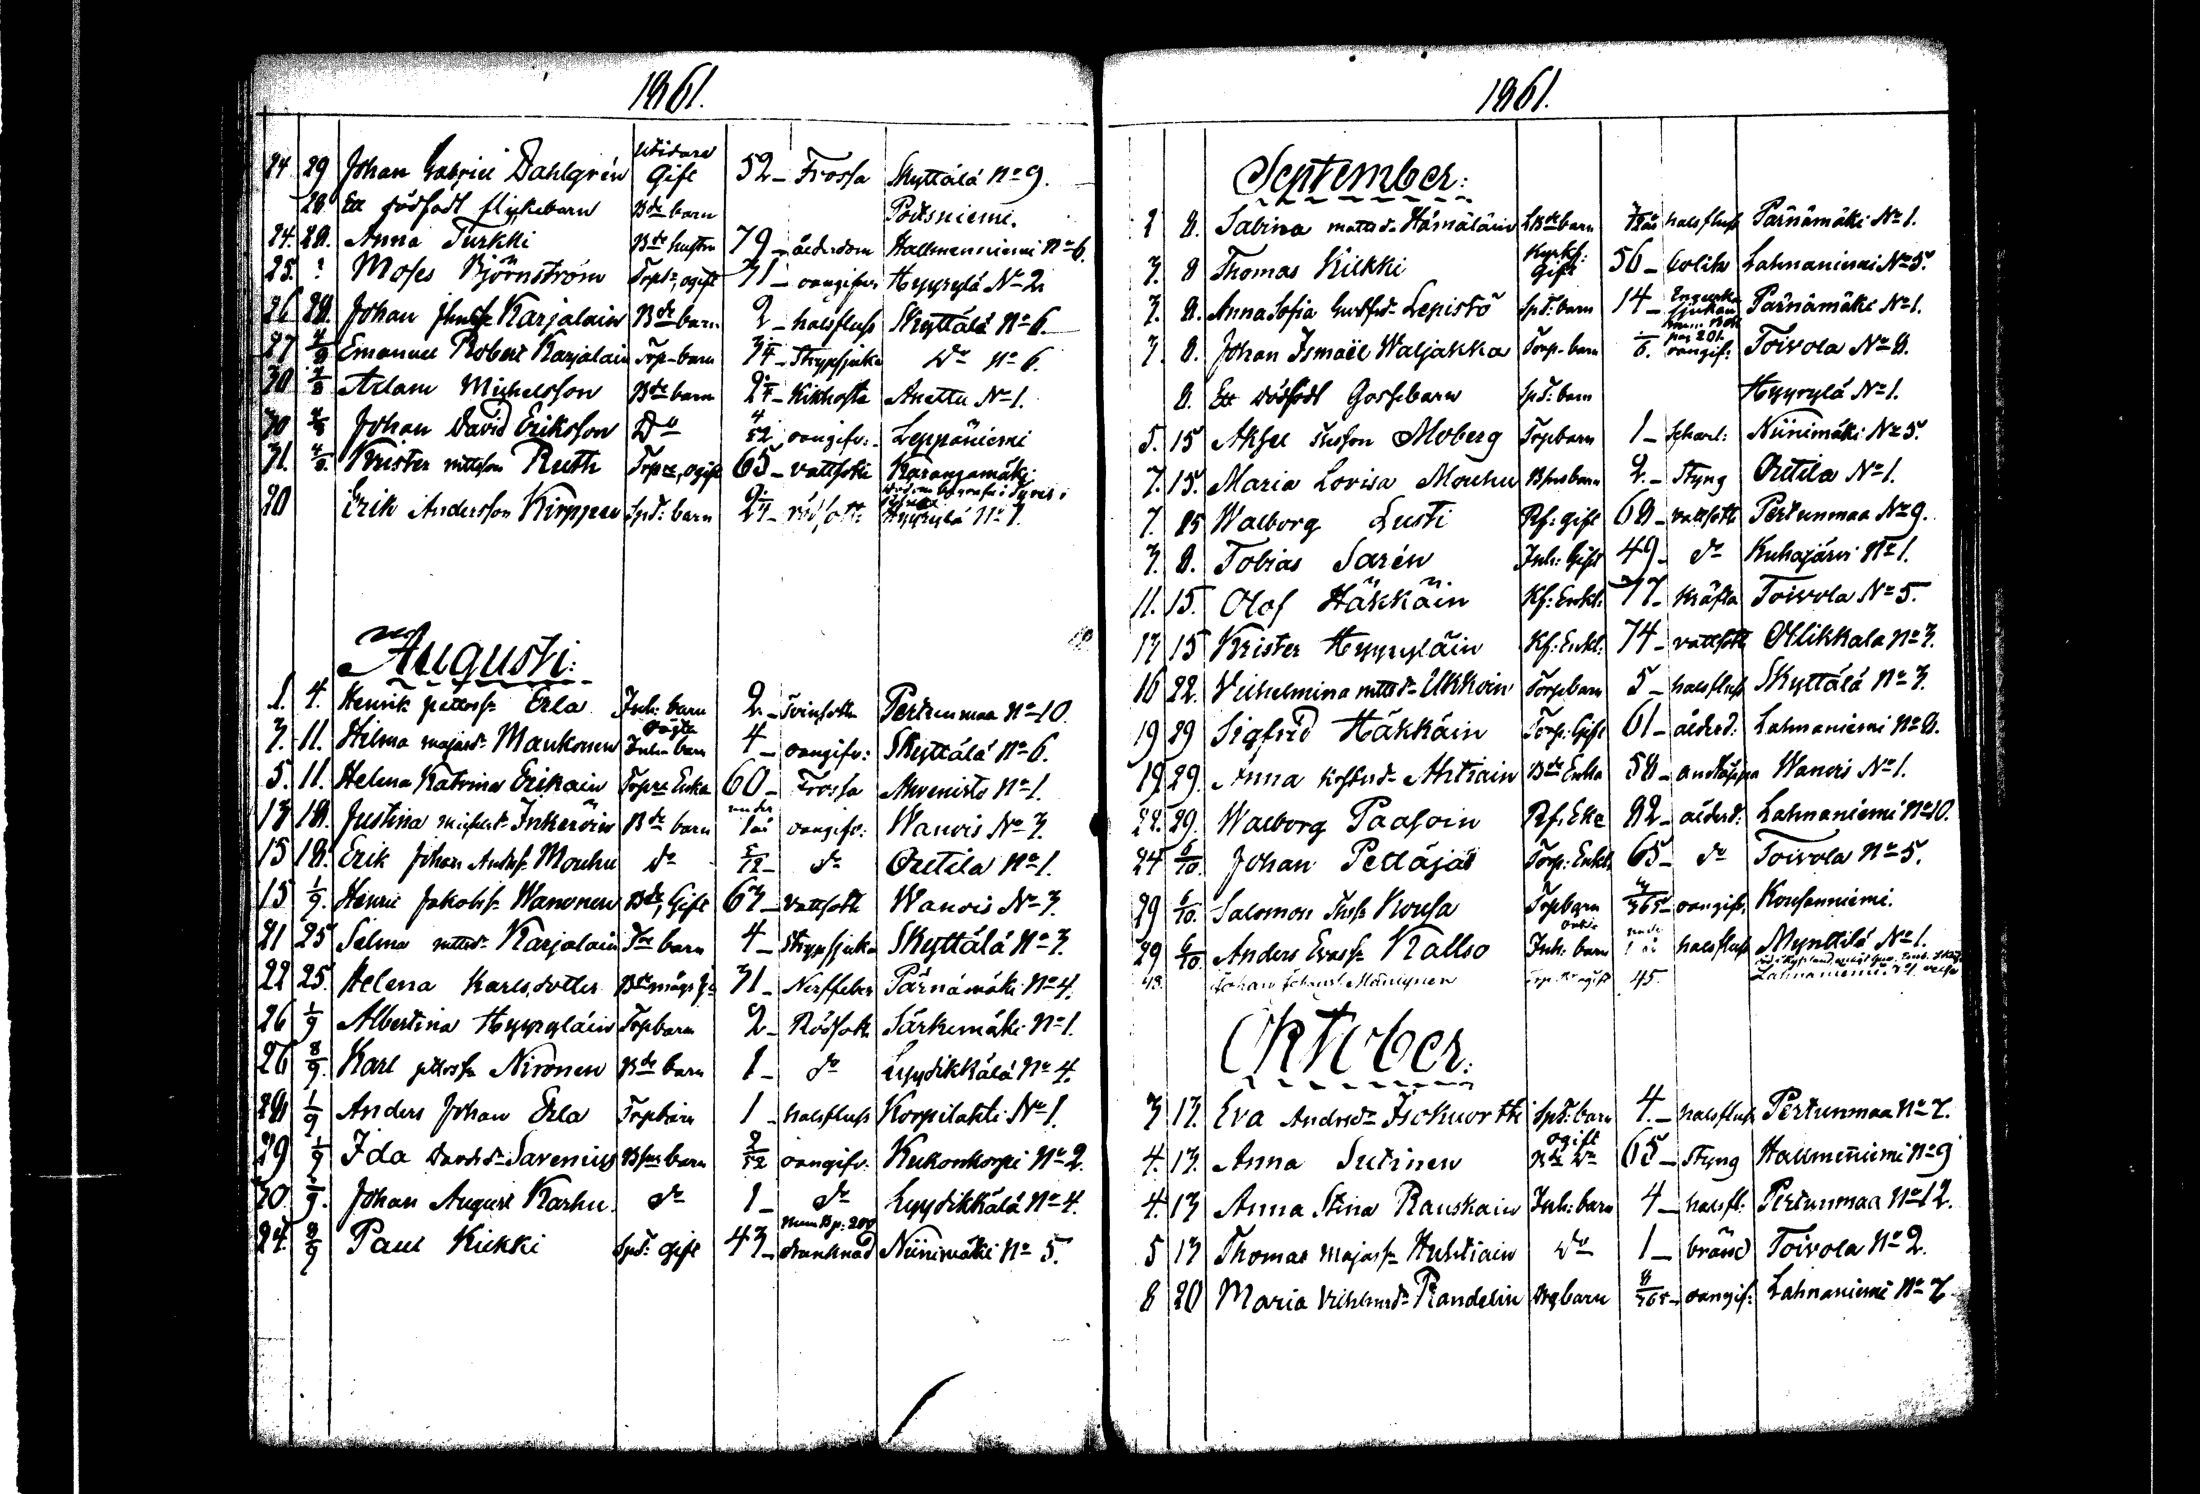 1861.
24. 29 Johan Gabriel Dahlgrén Gift 52 - Frossa Skyttälä No 9.
28. Ett dödfödt flickebarn Bde barn Pödsniemi.
24. 28. Anna Turkki Bde hustru 79 - ålderdom Hallmenniemi No 6.
25. ? Moses Björnström Torp: ogift 31 - oangifv: Hyyrylä No 2.
26 28. Johan Karjalain Bde barn 2 - halsfluss Skyttälä No 6.
27 4/8 Emanuel Robert Karjalain Torp-barn 3/4 - Strypsjuka Do No 6.
30 4/8 Adam Michelsson Bde barn 2/4 - Kikhosta Anettu No 1.
30 4/8 Johan David Eriksson Do 4/52 oangifv: Leppäniemi
31. 4/8. Krister mattsson Ruth Torpre, ogift 65 - vattsot Karangamäki
20 Erik Andersson Kirppu Spd: barn 2/4 - rödsot Hyyrylä No 1.
Augusti:
1. 4. Henrik Erla Inh: barn 2 - Tvinsot Pertunmaa No 10.
3. 11. Hilma majasd: Maukonen Inh: barn 4 - oangifv: Skyttälä No 6.
5. 11. Helena Katrina Erikain Torpre Enka 60 - Frossa Ahvenisto No 1.
13 18. Justina michelsd: Inkeröin Bde barn under 1 år oangifv: Wanvis No 3.
15 18. Erik Johan Andsn. Mouhu do 5/12 - do Outila No 1.
15 1/9. Henric Jakobss: Wanonen Bde, Gift 63 - Vattsot Wanvis No 3.
21 25 Selma mattsd: Karjalain Tor barn 4 - Strypsjuka Skyttälä No 3.
22 25. Helena Karlsdotter Bde mågs h: 31 - Nerffeber Pärnämäki No 4.
26 1/9 Albertina Hyyryläin Torpbarn 2 - Rödsot Särkemäki No 1.
26 8/9. Karl Nironen Bde barn 1 - do Lyydikkälä No 4.
28 1/9 Anders Johan Erla Torpbarn 1 - halsfluss Korpilahti No 1.
29 1/9 Ida Davidsd: Savenius Bsns barn 2/52 oangifv: Kukonkorpi No 2.
30. 1/9. Johan August Karhu do 1 - do Lyydikkälä No 4.
24. 8/9 Paul Kiekki Spd: gift 43 - drunknad Niinimäki No 5.
1861.
September:
2 8. Sabina mattsd: Hämäläin Bde barn 7/12 år halsfluss Pärnämäki No 1.
3. 8 Thomas Kiekki Gift 56 - Colik Lahnaniemi No 5.
3. 8. Anna Sofia Gustfsd: Lepistö Spd: barn 14 - Engelska Sjukan Pärnämäki No 1.
3. 8. Johan Ismaël Waljakka Torp-barn 1/6. oangif: Toivola No 8.
8. Ett dödfödt Gossebarn Spd: barn Hyyrylä No 1.
5. 15 Aksel Moberg Torpbarn 1 - Scharl: Niinimäki No 5.
7. 15. Maria Lovisa Mouhu Bsns barn 2. - Styng Outila No 1.
7. 15 Walborg Lusti Rf: gift 68 - vattsot Pertunmaa No 9.
3. 8. Tobias Sarén Inh: Gift 49 - do Kuhajärvi No 1.
11. 15. Olof Häkkäin Kf: Enkl: 77 - Kräfta Toivola No 5.
13 15 Krister Hyyryläin Kf: Enkl: 74 - vattsot Ollikkala No 3.
16 22. Vilhelmina mattsd: Ukkoin Torpbarn 5 - halsfluss Skyttälä No 3.
19 29 Sigfrid Häkkäin Torp: Gift 61 - ålderd: Lahnaniemi No 8.
19. 29. Anna Ahtiain Bde Enka 58 - andtäppa Wanvis No 1.
22. 29. Walborg Paasoin Rf: Eke 82 - ålderd: Lahnaniemi No 10.
24 6/10. Johan Pettäjä Torp: Enkl. 65 - do Toivola No 5.
29 6/10. Salomon Kousa Torpbarn /365 - oangif: Kousanniemi.
29 6/10. Anders Evass: Kallio Inh: barn under 1 år halsfluss Mynttilä No 1.
Johan Johanss. Mäntynen 45. Lahnaniemi
Oktober:
3 13. Eva Andersd: Ischuorthi Spd: barn 4 - halsfluss Pertunmaa No 7.
4. 13. Anna Sutinen ogift 65 - Styng Hallmeniemi No 9
4. 13 Anna Stina Rauskain Inh: barn 4 - halsfl: Pertunmaa No 12.
5 13 Thomas Majass: Huhtiain do 1 - bränd Toivola No 2.
8 20 Maria Vilhelmsd: Randelin barn 8/365 - oangif: Lahnaniemi No 7.